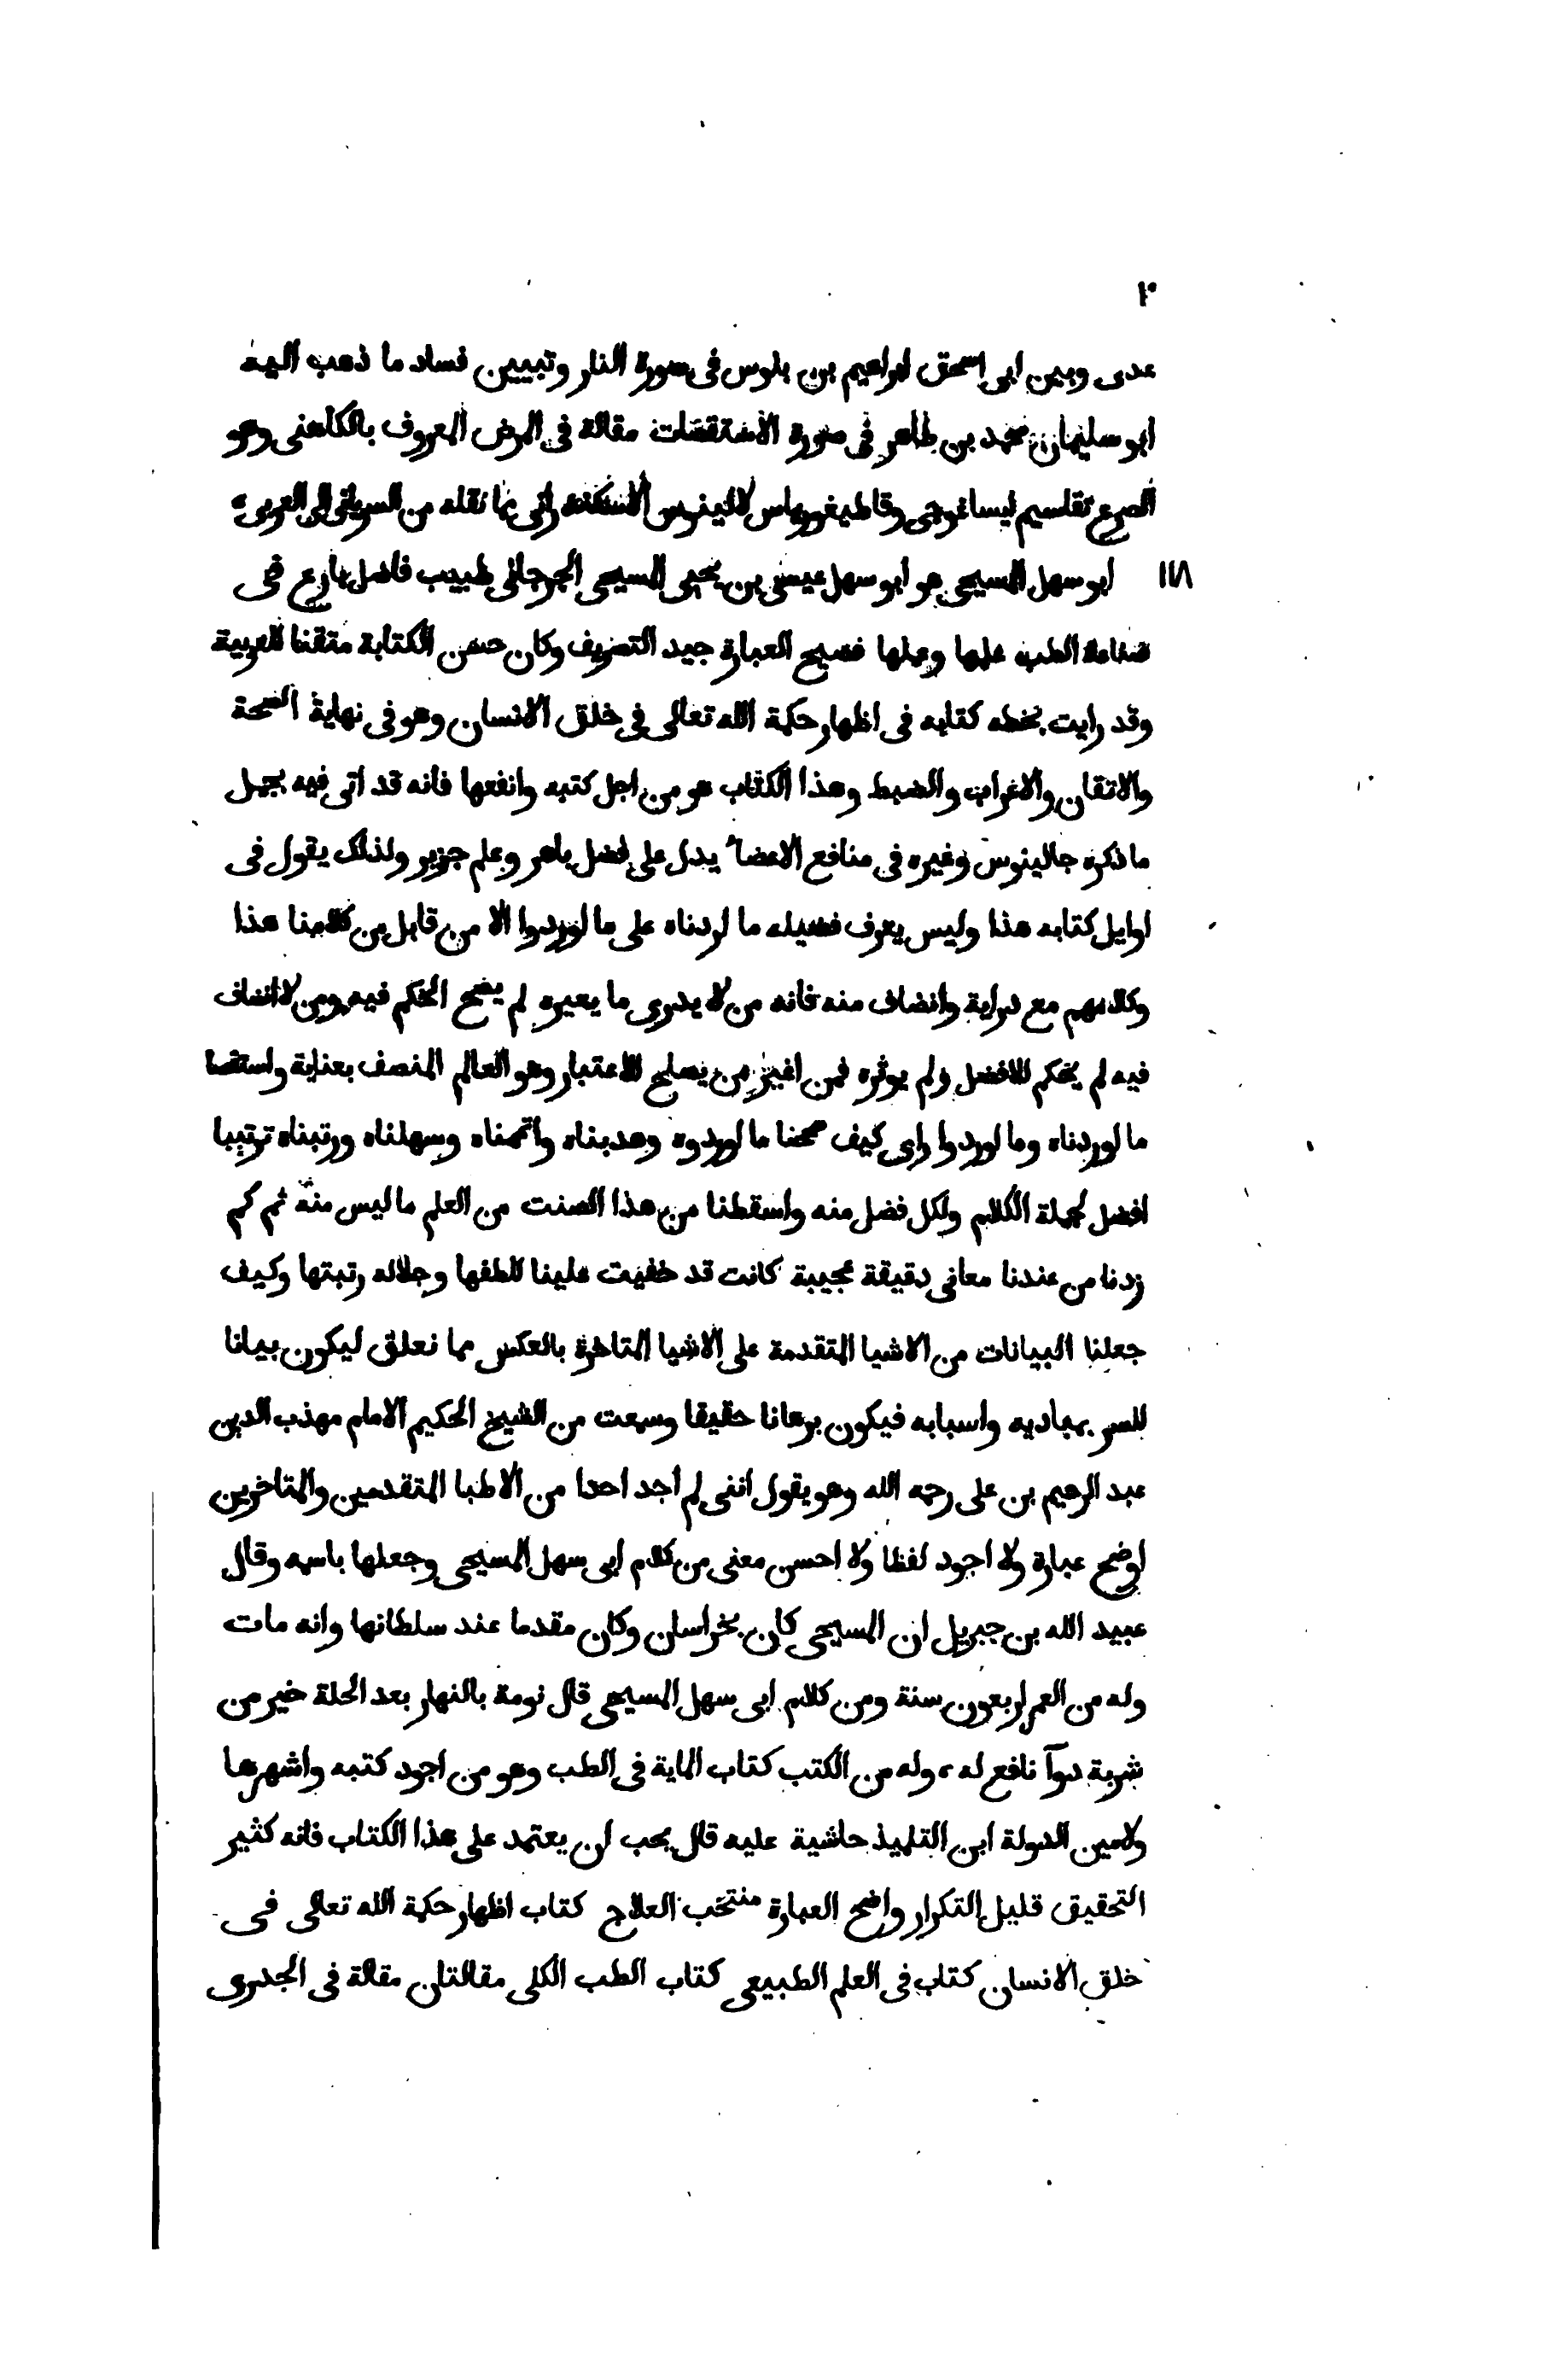 ٢
عدى وبين ابى اسحق ابراهيم بن بلوس فى صورة النار وتبيين فساد ما ذهب اليه
ابو سليمان محمد بن طاهر فى صورة الاستقصات مقالة فى المرض المعروف بالكاهنى وهو
الصرع تقاسيم ايساغوجى وقاطيغورياس لالينوس الاسكندرانى مما نقله من السريانى الى العربى
١١٨ ابو سهل المسيحى هو ابو سهل عيسى بن يحيى المسيحى الجرجانى طبيب فاضل بارع فى
صناعة الطب علمها وعملها فصيح العبارة جيد التصريف وكان حسن الكتابة متقنا للعربية
وقد رايت بخطه كتابه فى اظهار حكمة الله تعالى فى خلق الانسان وهو فى نهاية الصحة
والاتقان والاعراب والضبط وهذا الكتاب هو من اجل كتبه وانفعها فانه قد اتى فيه بجمل
ما ذكره جالينوس وغيره فى منافع الاعضاء يدل على فضل باهر وعلم جزير ولذلك يقول فى
اوايل كتابه هذا وليس يعرف فضيله ما اردناه على ما اوردوا الا من قابل من كلامنا هذا
وكلامهم مع دراية وانصاف منه فانه من لا يدرى ما يعيره لم يصح الحكم فيه ومن لا انصاف
فيه لم يحكم للافضل ولم يوثره فمن اعتبر من يصلح للاعتبار وهو العالم المنصف بعناية واستقصا
ما اوردناه وما اوردوا راى كيف صححنا ما اوردوه وهدبناه واتممناه وسهلناه ورتبناه ترتيبا
افضل لجملة الكلام ولكل فضل منه واسقطنا من هذا الصنت من العلم ما ليس منه ثم كم
زدنا من عندنا معانى دقيقة عجيبة كانت قد خفيت علينا للطفها وجلاله رتبتها وكيف
جعلنا البيانات من الاشيا المتقدمة على الاشيا المتاخرة بالعكس مما نعلق ليكون بيانا
للسر بمباديه واسبابه فيكون برهانا حقيقا وسمعت من الشيخ الحكيم الامام مهذب الدين
عبد الرحيم بن على رحمه الله وهو يقول اننى لم اجد احدا من الاطبا المتقدمين والمتاخرين
اوضح عبارة ولا اجود لفظا ولا احسن معنى من كلام ابى سهل المسيحى وجعلها باسمه وقال
عبيد الله بن جبريل ان المسيحى كان بخراسان وكان مقدما عند سلطانها وانه مات
وله من العمر اربعون سنة ومن كلام ابى سهل المسيحى قال نومة بالنهار بعد الحلة خير من
شربة دوآ نافع له، وله من الكتب كتاب الماية فى الطب وهو من اجود كتبه واشهرها
ولامين الدولة ابن التلميذ حاشية عليه قال يجب ان يعتمد على هذا الكتاب فانه كثير
التحقيق قليل التكرار واضح العبارة منتخب العلاج كتاب اظهار حكمة الله تعالى فى
خلق الانسان كتاب فى العلم الطبيعى كتاب الطب الكلى مقالتان مقالة فى الجدرى